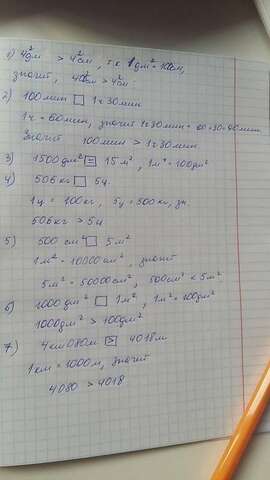 1) 4дм² > 4см², т.к. 1дм² = 100см,
значит, 4дм² > 4см².
2) 100 мин □ 1ч 30 мин
1ч = 60мин, значит 1ч 30мин = 60+30=90мин,
Значит 100мин > 1ч 30мин
3) 1500дм² = 15м², 1м² = 100дм²
4) 506кг □ 5ц.
1ц = 100кг, 5ц = 500кг, зн.
506кг > 5ц
5) 500 см² □ 5м²
1м² = 10000см², значит
5м² = 50000см², 500см² < 5м²
6) 1000дм² □ 1м², 1м² = 100дм²
1000дм² > 100дм²
7) 4км 080м > 4018м
1км = 1000м, значит
4080 > 4018